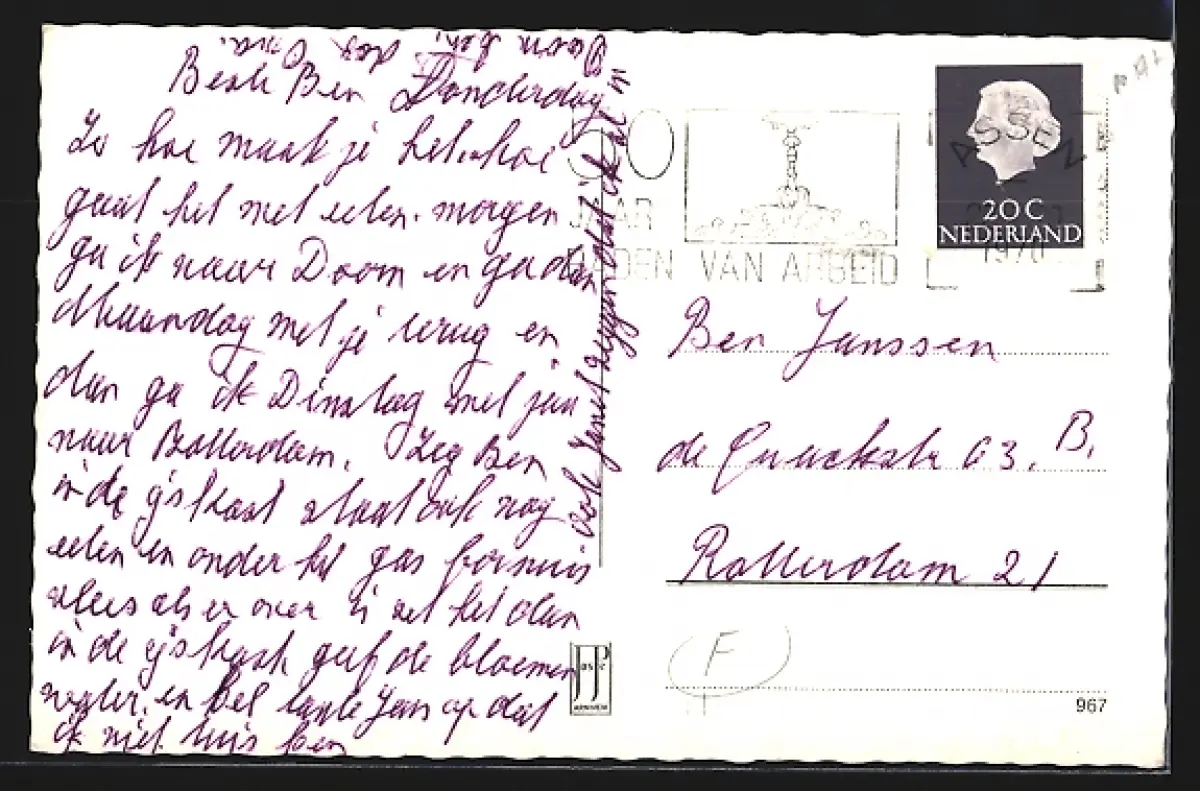 Beste Ben Donderdag
Zo hoe maak je het. hoe
gaat het met eeten. morgen
ga ik naar Doorn en ga dan
Maandag met je terug en
dan ga ik Dinstag met jan
naar Rotterdam. Zeg Ben
in de ijskast staat ook nog
eeten en onder het gas
vlees als er over is zet het dan
in de ijskast geef de bloemen
water. en bel tante Jans op dat
ik niet tuis ben
ook Janet zeggen dat ik at
Doorn ben. dag Oma.
50
JAAR
VAN ARBEID
ASSEN
1970
20 C
NEDERLAND
Ben Janssen
de Quackstr 63. B.
Rotterdam 21
F
JP
ARNHEM
967